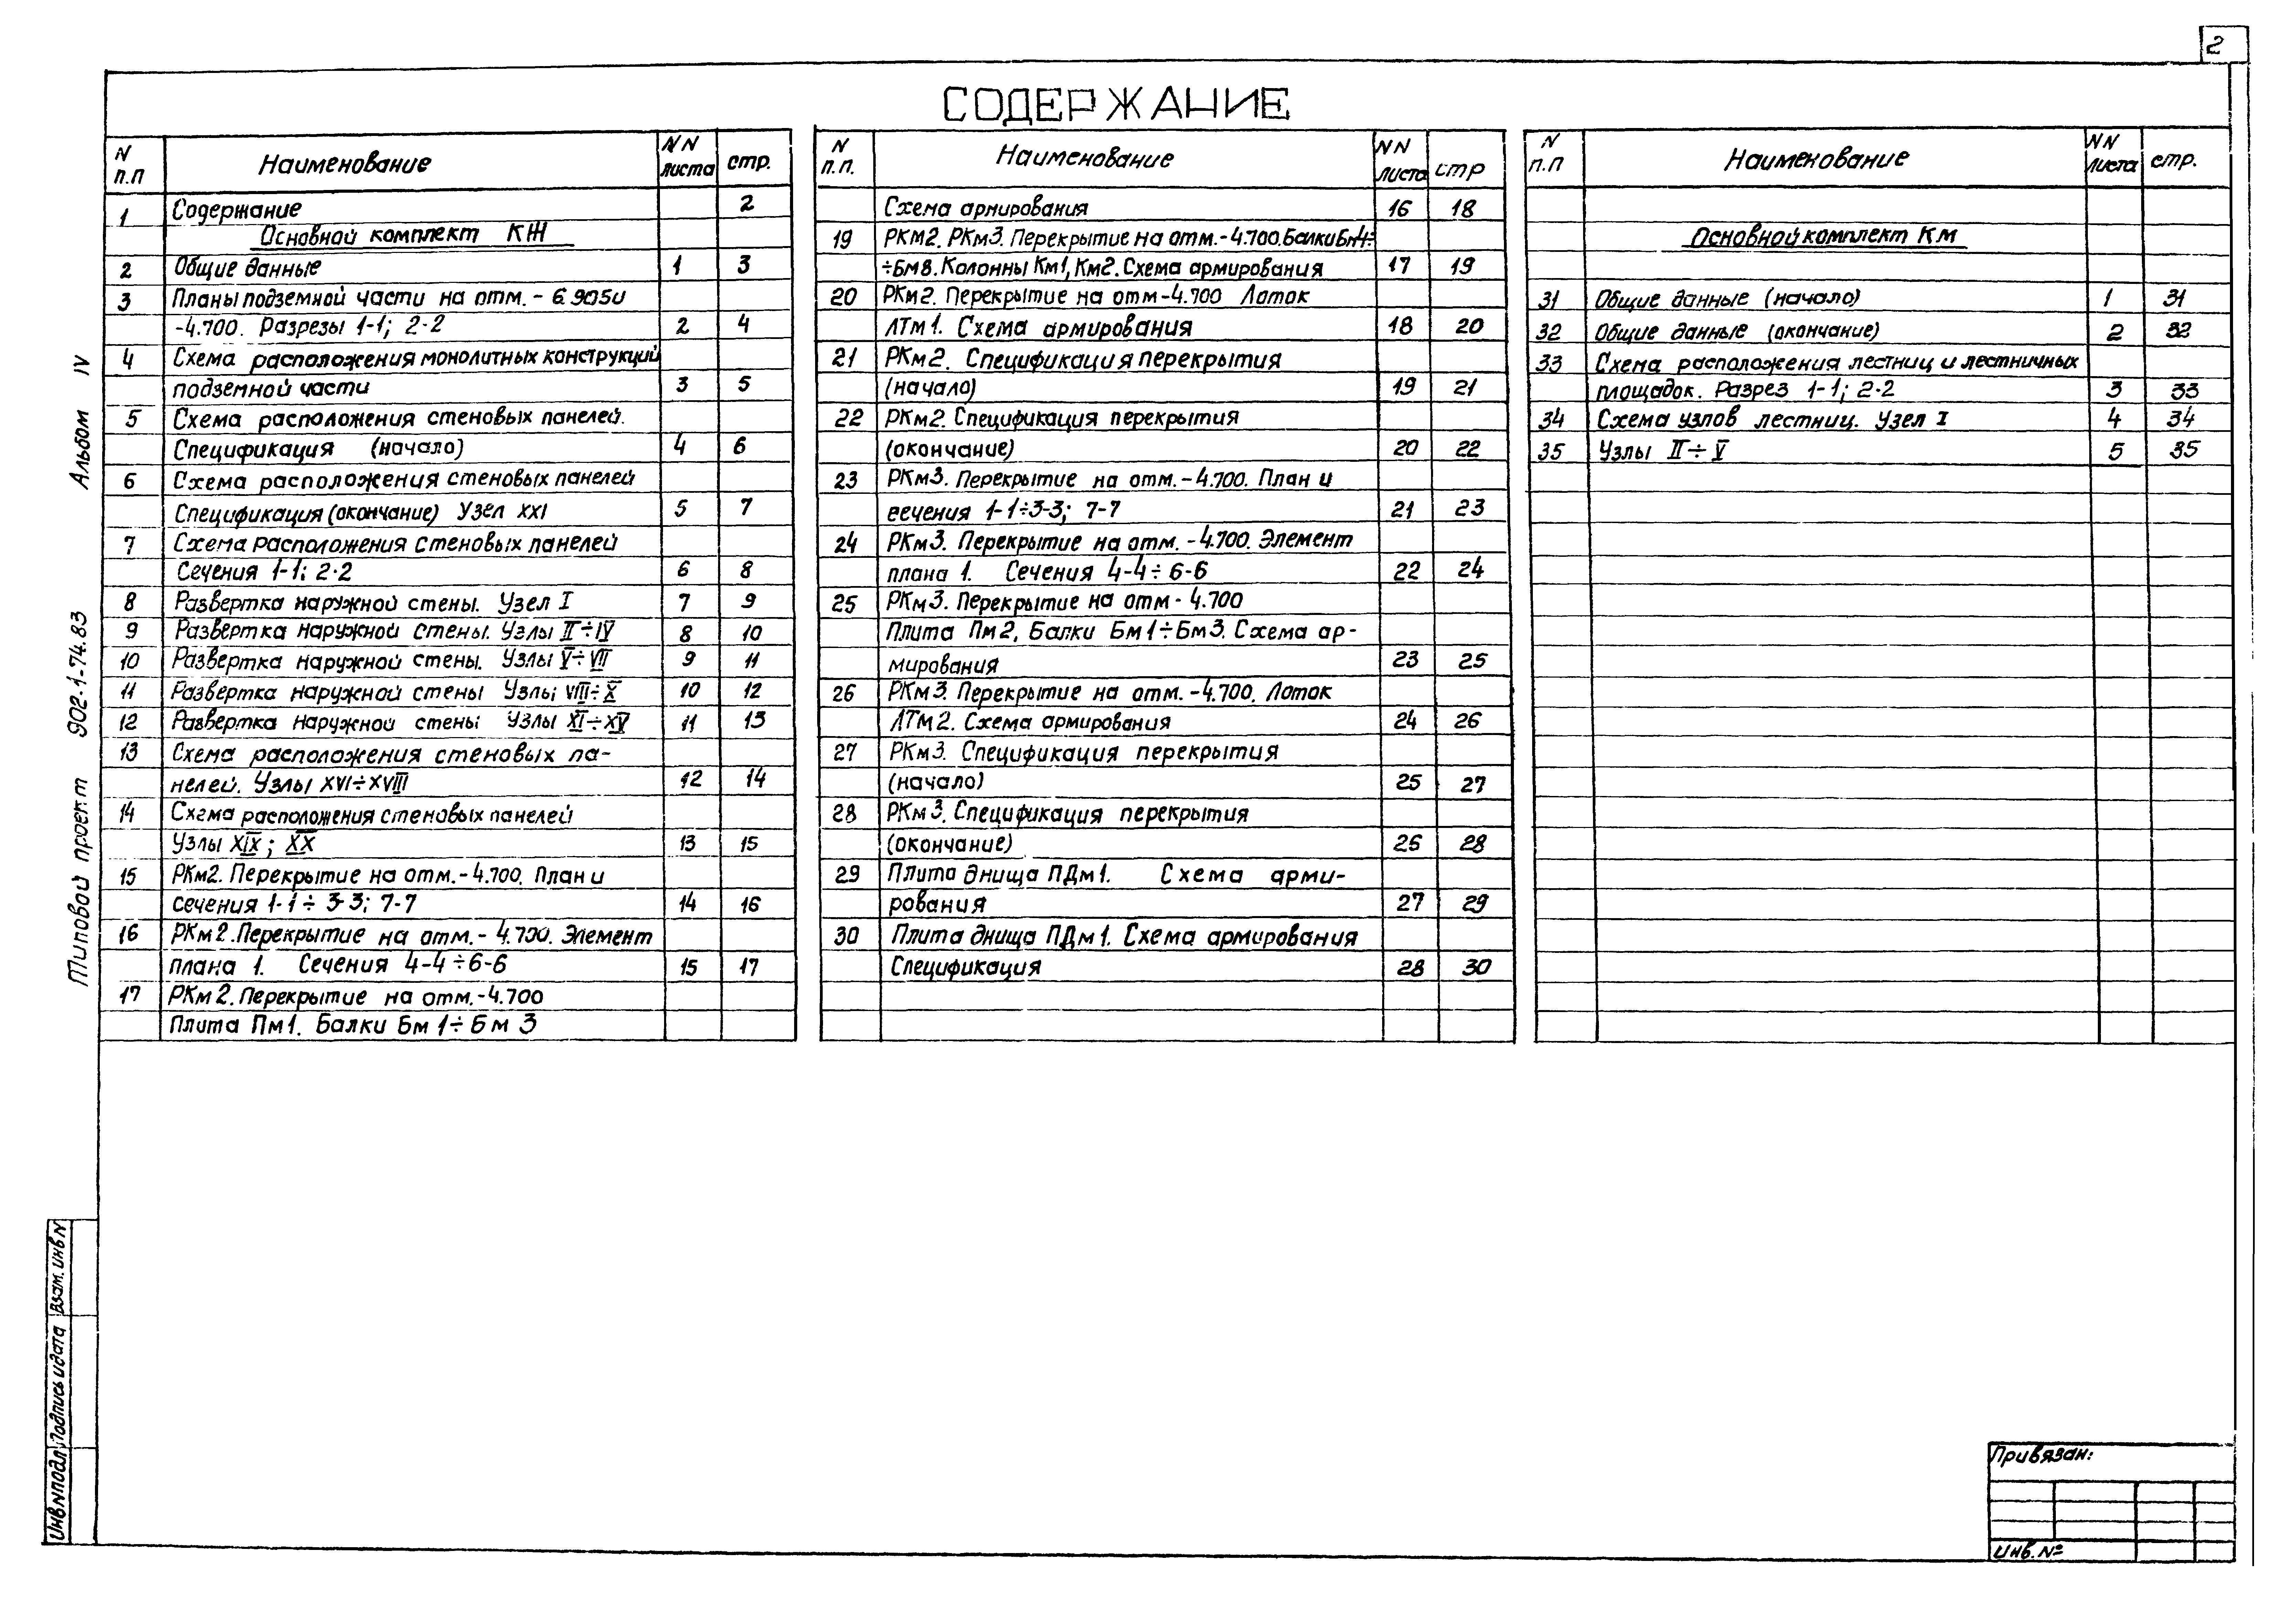 2
СОДЕРЖАНИЕ
N п.п Наименование NN листа стр.
1 Содержание 2
Основной комплект КЖ
2 Общие данные 1 3
3 Планы подземной части на отм. - 6.905 и
-4.700. Разрезы 1-1; 2-2 2 4
4 Схема расположения монолитных конструкций
подземной части 3 5
5 Схема расположения стеновых панелей.
Спецификация (начало) 4 6
6 Схема расположения стеновых панелей
Спецификация (окончание) Узел XXI 5 7
7 Схема расположения стеновых панелей
Сечения 1-1; 2-2 6 8
8 Развертка наружной стены. Узел I 7 9
9 Развертка наружной стены. Узлы II÷IV 8 10
10 Развертка наружной стены. Узлы V÷VII 9 11
11 Развертка наружной стены Узлы VIII÷X 10 12
12 Развертка наружной стены Узлы XI÷XV 11 13
13 Схема расположения стеновых па-
нелей. Узлы XVI÷XVIII 12 14
14 Схема расположения стеновых панелей
Узлы XIX; XX 13 15
15 РКм2. Перекрытие на отм.-4.700. План и
сечения 1-1÷3-3; 7-7 14 16
16 РКм2. Перекрытие на отм.- 4.700. Элемент
плана 1. Сечения 4-4÷6-6 15 17
17 РКм2. Перекрытие на отм.-4.700
Плита Пм1. Балки Бм1÷Бм3
N п.п. Наименование NN листа стр
Схема армирования 16 18
19 РКм2. РКм3. Перекрытие на отм.-4.700. Балки Бм4÷
÷Бм8. Колонны Км1, Км2. Схема армирования 17 19
20 РКм2. Перекрытие на отм-4.700 Лоток
ЛТм1. Схема армирования 18 20
21 РКм2. Спецификация перекрытия
(начало) 19 21
22 РКм2. Спецификация перекрытия
(окончание) 20 22
23 РКм3. Перекрытие на отм.-4.700. План и
сечения 1-1÷3-3; 7-7 21 23
24 РКм3. Перекрытие на отм. -4.700. Элемент
плана 1. Сечения 4-4÷6-6 22 24
25 РКм3. Перекрытие на отм- 4.700
Плита Пм2, Балки Бм1÷Бм3. Схема ар-
мирования 23 25
26 РКм3. Перекрытие на отм.-4.700. Лоток
ЛТм2. Схема армирования 24 26
27 РКм3. Спецификация перекрытия
(начало) 25 27
28 РКм3. Спецификация перекрытия
(окончание) 26 28
29 Плита днища ПДм1. Схема арми-
рования 27 29
30 Плита днища ПДм1. Схема армирования
Спецификация 28 30
N п.п Наименование NN листа стр.
Основной комплект КМ
31 Общие данные (начало) 1 31
32 Общие данные (окончание) 2 32
33 Схема расположения лестниц и лестничных
площадок. Разрез 1-1; 2-2 3 33
34 Схема узлов лестниц. Узел I 4 34
35 Узлы II÷V 5 35
Типовой проект 902-1-74.83 Альбом IV
Инв.N подл. Подпись и дата Взам. инв N
Привязан:
Инв. №